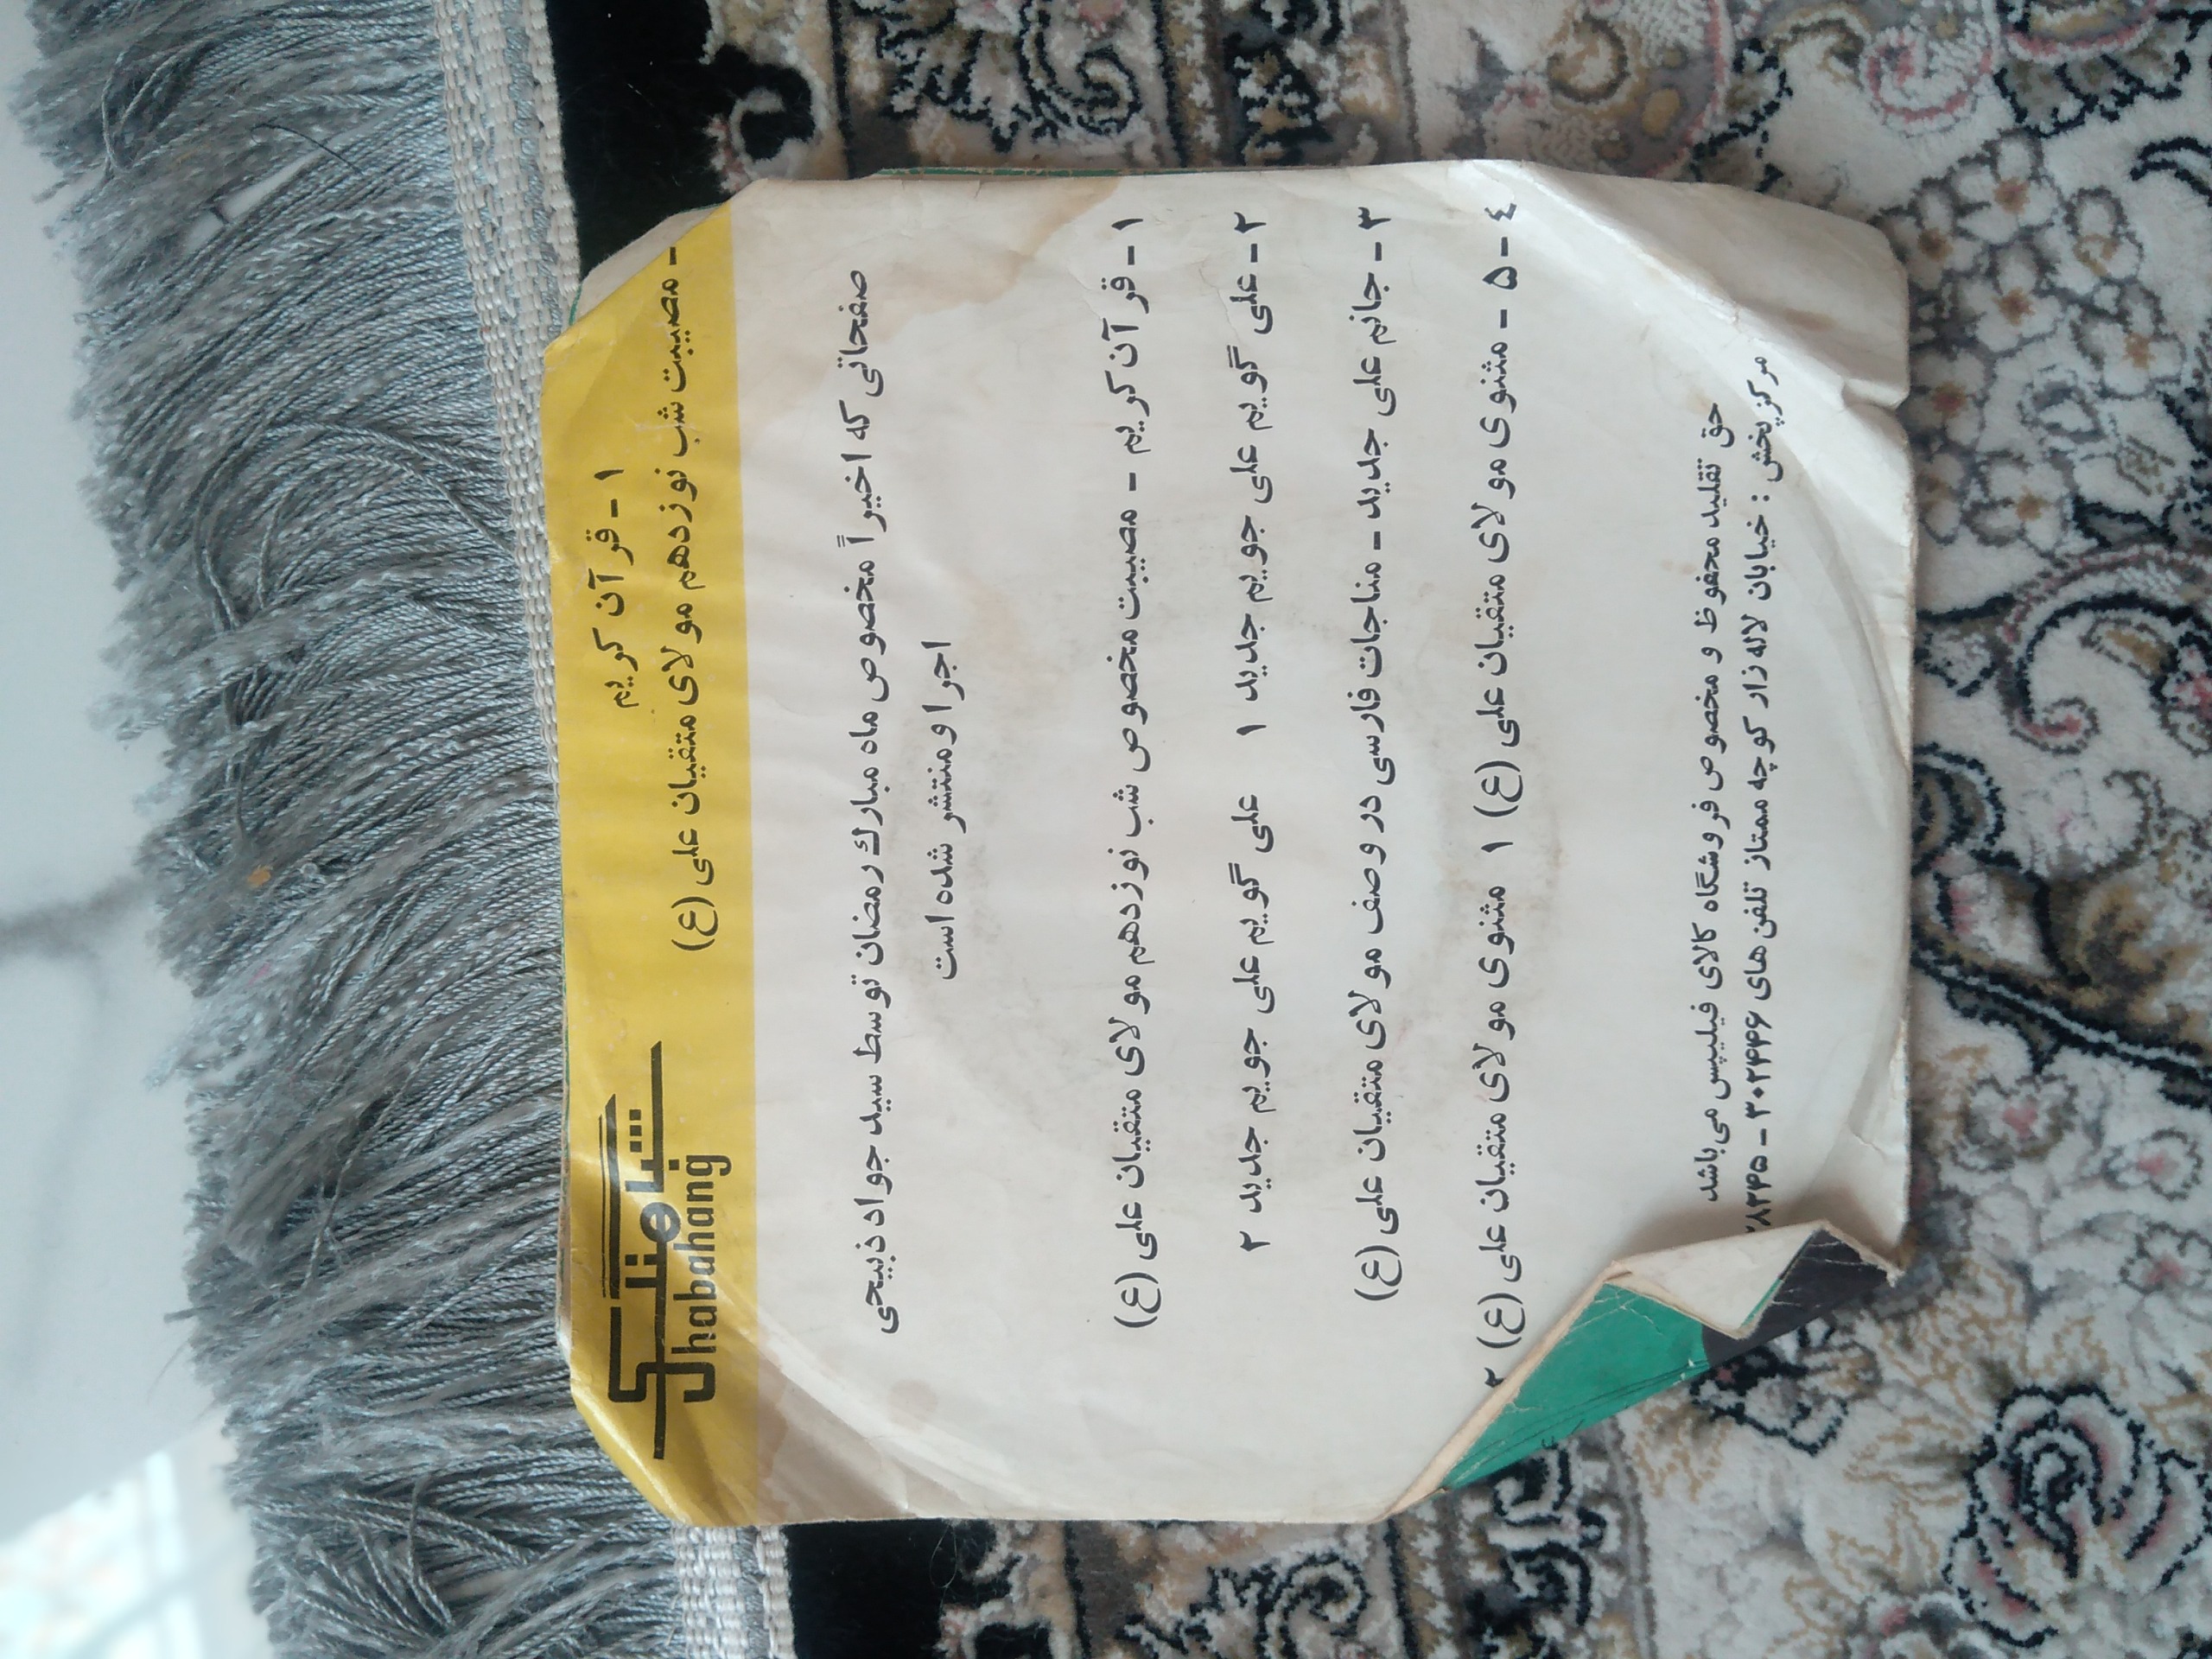 ۱ - قرآن کریم
- مصیبت شب نوزدهم مولای متقیان علی (ع)
شباهنگ
Shabahang
صفحاتی که اخیراً مخصوص ماه مبارک رمضان توسط سید جواد ذبیحی
اجرا و منتشر شده است
۱ - قرآن کریم - مصیبت مخصوص شب نوزدهم مولای متقیان علی (ع)
۲ - علی گویم علی جویم جدید ۱ علی گویم علی جویم جدید ۲
۳ - جانم علی جدید - مناجات فارسی در وصف مولای متقیان علی (ع)
٤ - ۵ - مثنوی مولای متقیان علی (ع) ۱ مثنوی مولای متقیان علی (ع) ۲
حق تقلید محفوظ و مخصوص فروشگاه کالای فیلیپس می‌باشد
مرکز پخش : خیابان لاله‌زار کوچه ممتاز تلفن‌های